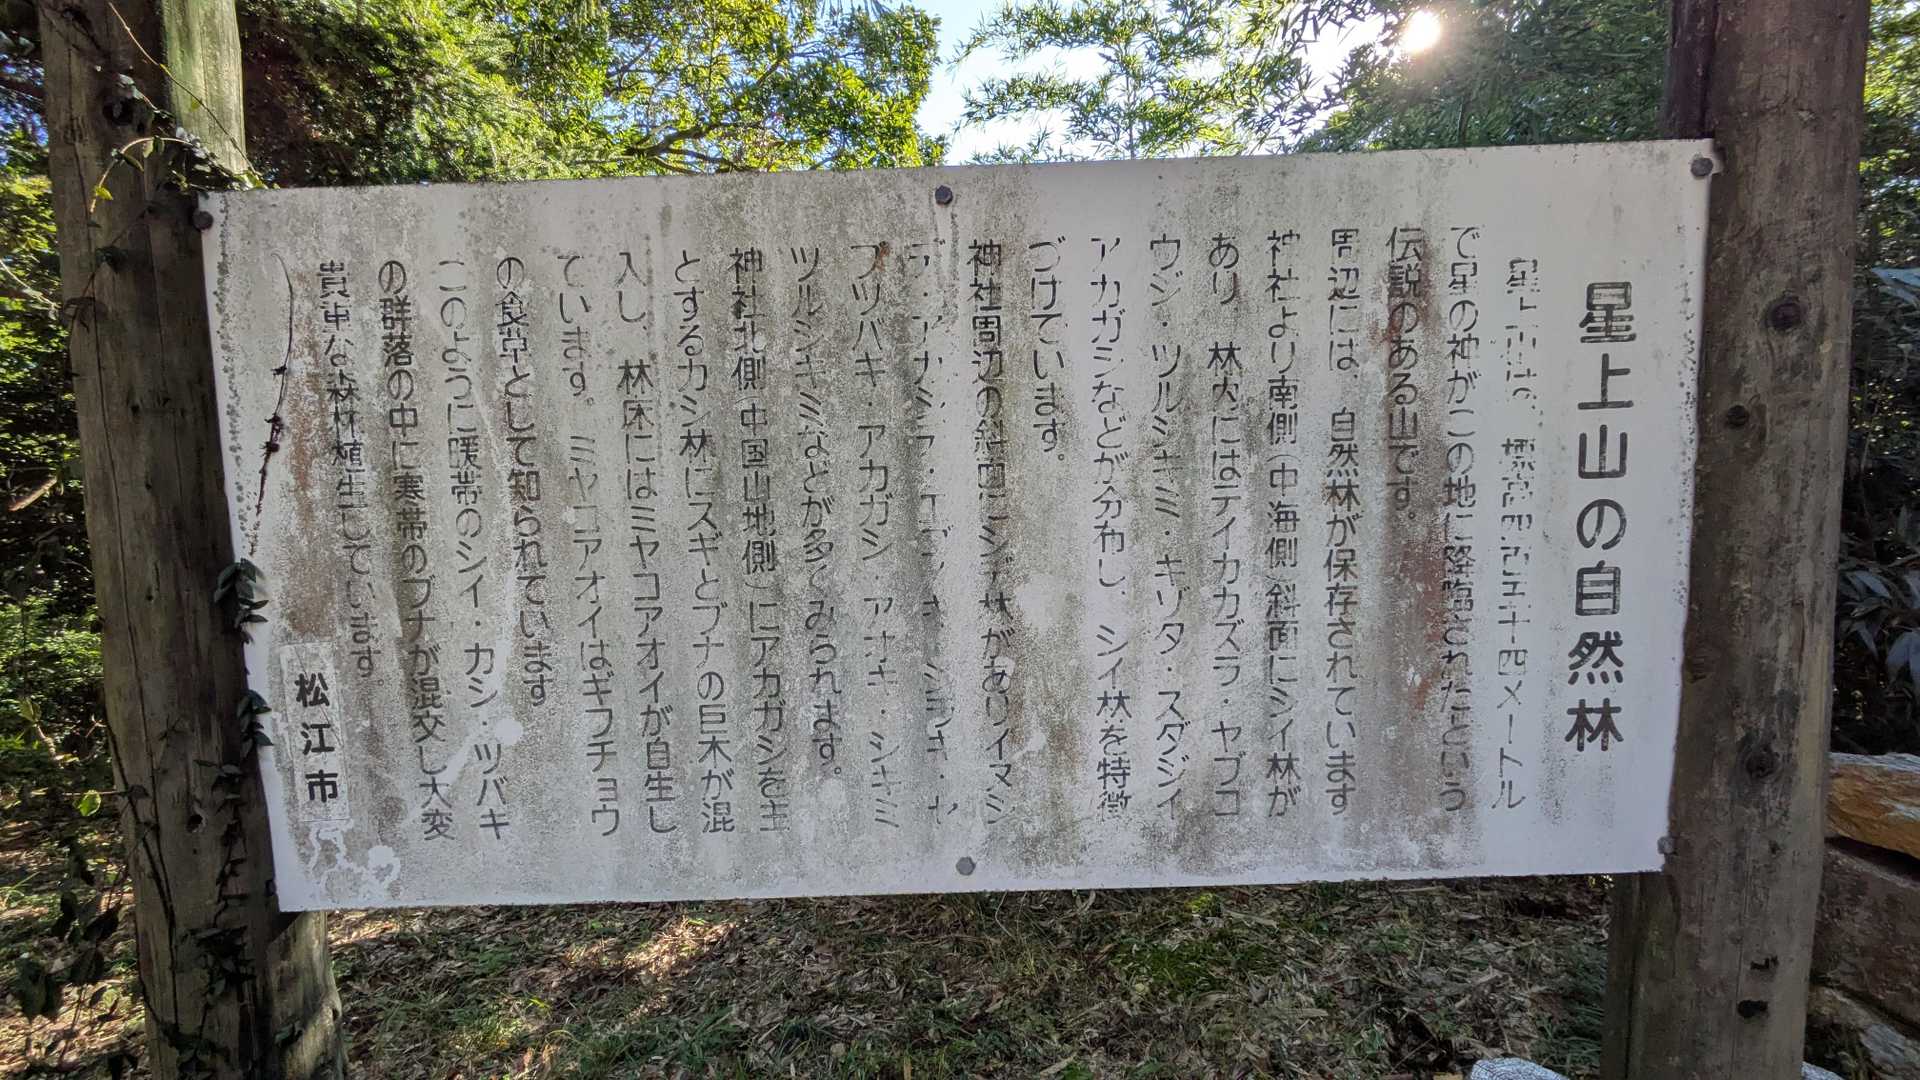 星上山の自然林
星上山は、標高四百五十四メートル
で星の神がこの地に降臨されたという
伝説のある山です。
周辺には、自然林が保存されています
神社より南側(中海側)斜面にシイ林が
あり、林内にはテイカカズラ・ヤブコ
ウジ・ツルシキミ・キヅタ・スダジイ
アカガシなどが分布し、シイ林を特徴
づけています。
神社周辺の斜面にシデ林がありイヌシ
デ・アカシデ・・シラキ・ヤ
ブツバキ・アカガシ・アオキ・シキミ
ツルシキミなどが多くみられます。
神社北側(中国山地側)にアカガシを主
とするカシ林にスギとブナの巨木が混
入し、林床にはミヤコアオイが自生し
ています。ミヤコアオイはギフチョウ
の食草として知られています。
このように暖帯のシイ・カシ・ツバキ
の群落の中に寒帯のブナが混交し大変
貴重な森林植生しています。
松江市